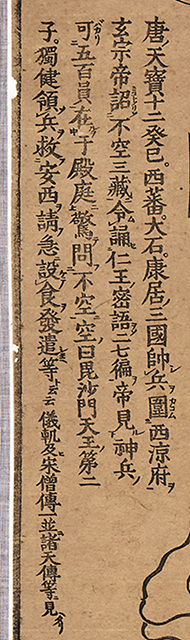 唐天寶十二癸巳。西蕃。大石。康居三國帥兵圍西涼府。
玄宗帝詔不空三藏令誦仁王密語二七徧。帝見神兵
可五百員在于殿庭驚問。不空空曰毘沙門天王第二
子。獨健領兵救安西請急設食發遣等云云 儀軌及宋僧傳並諸天傳等見